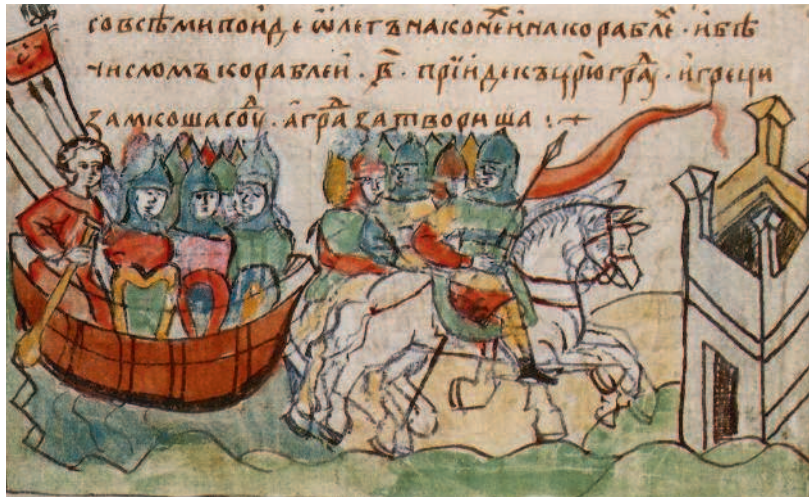 совсѣмипоиде ѡлегъ наконеⷯ инакораблеⷯ · ибѣ
числомъ кораблеи · в҃ · прїидекъ црⷭ҇юграⷣ · игреци
замкошасоуⷣ · аграⷣ затвориша :· +